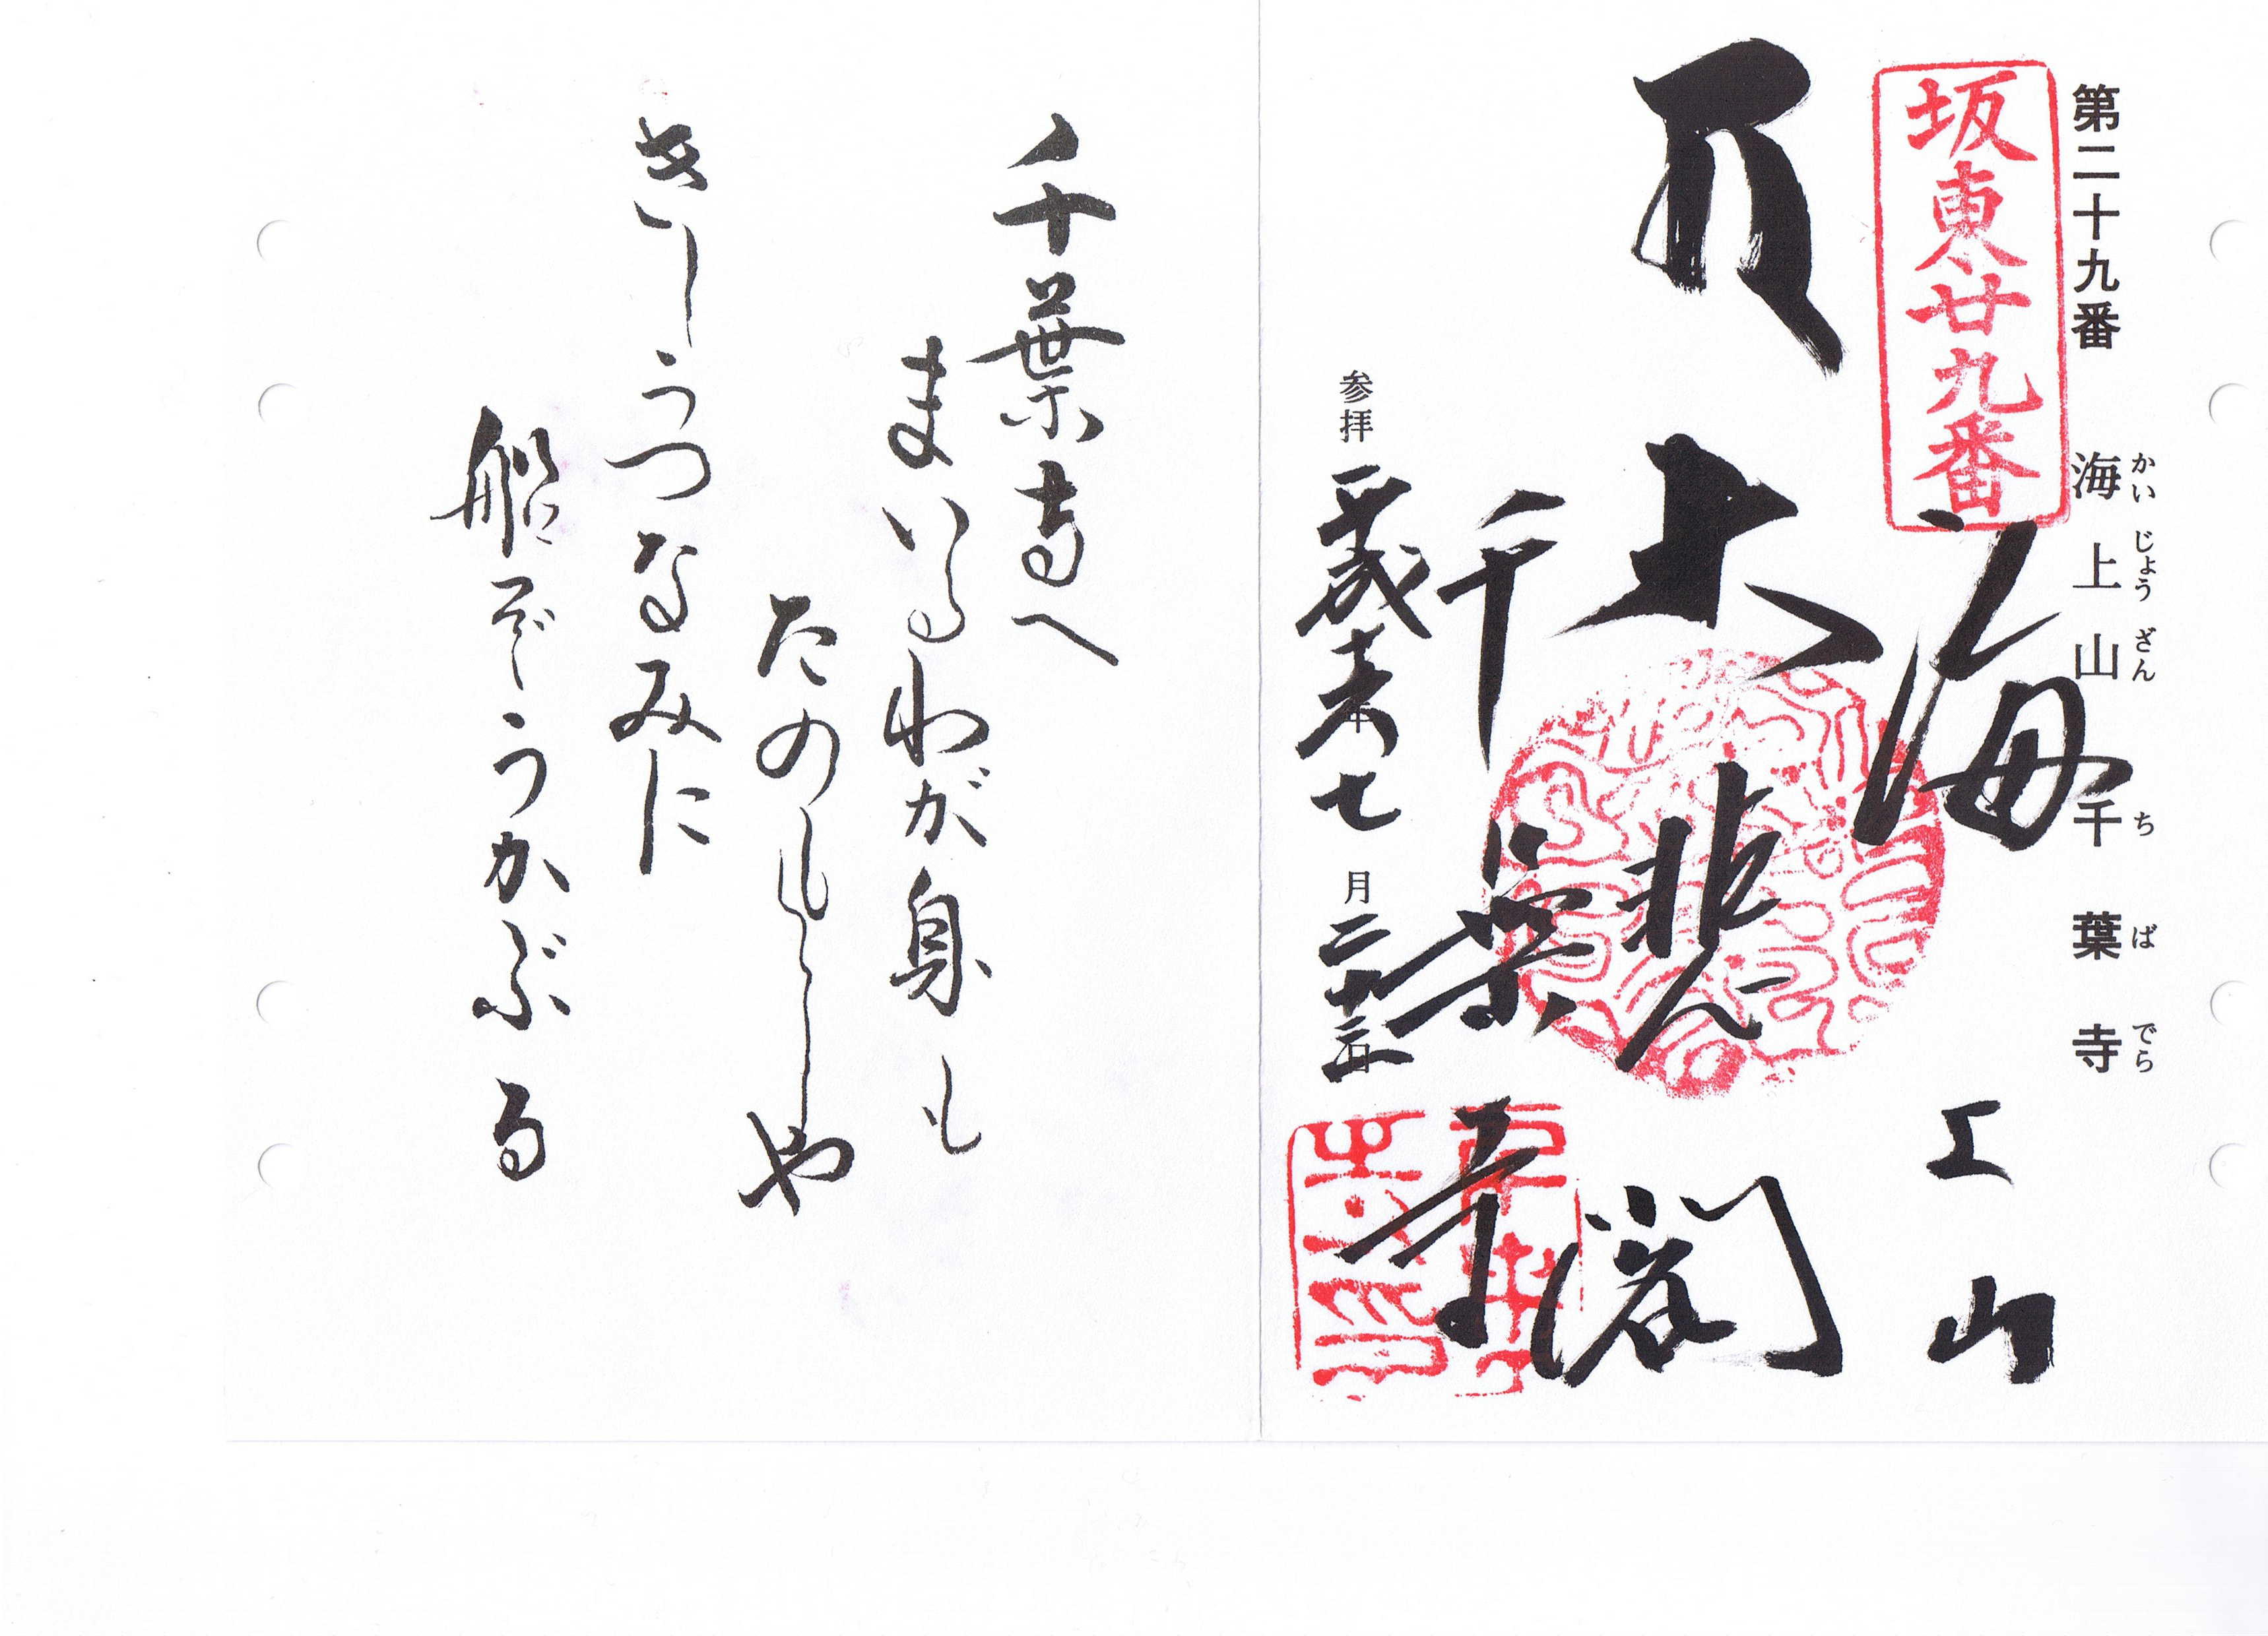 第二十九番 海上山 千葉寺
かいじょうざん ちばでら
坂東廿九番
海上山
大悲閣
千葉寺
参拝 平成 年 七月二十三日
千葉寺へ
まいるわが身も
たのもしや
きしうつなみに
船ぞうかぶる